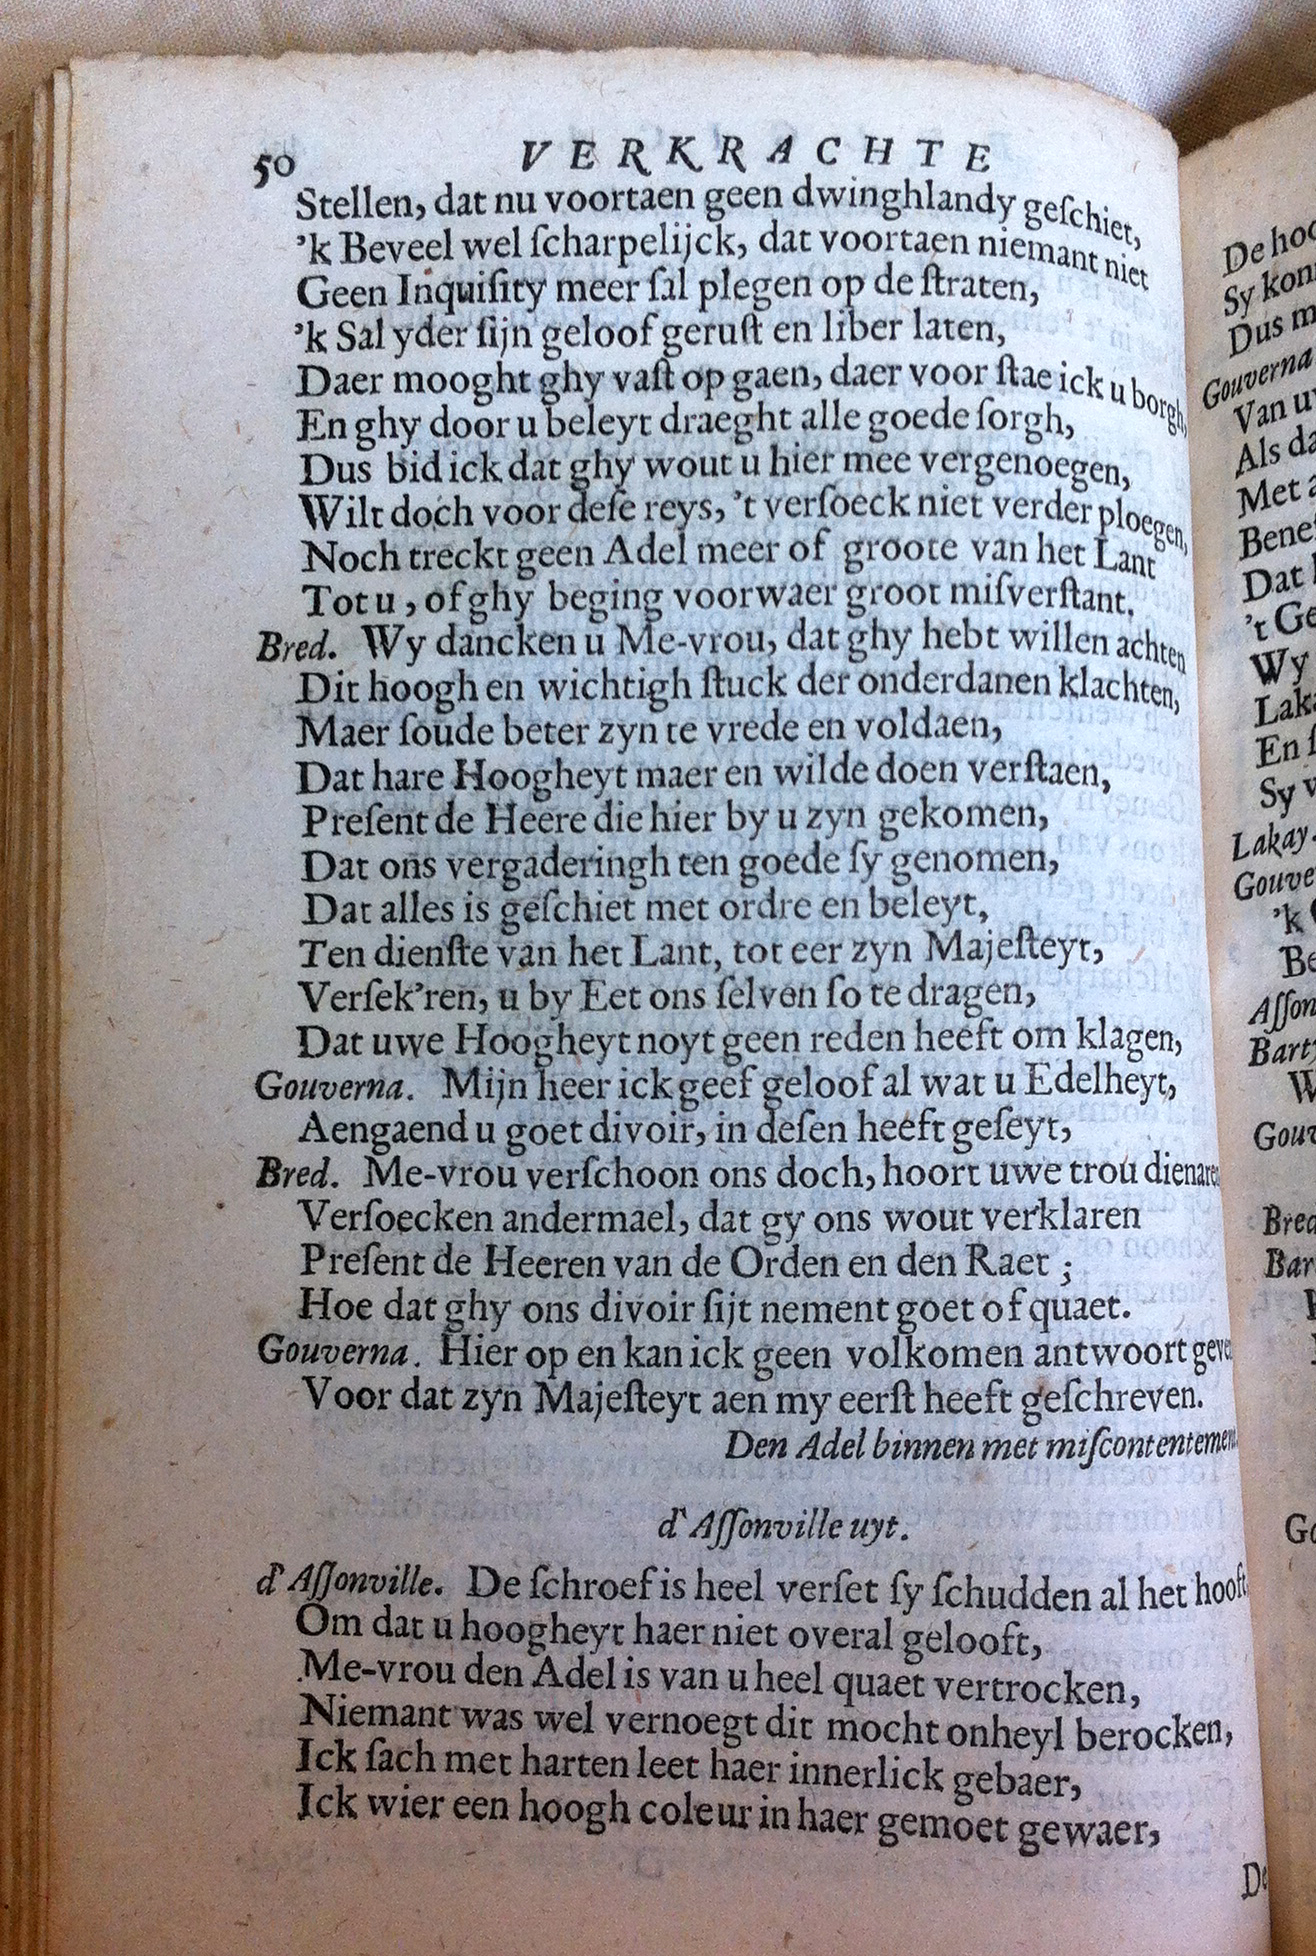 50 VERKRACHTE
Stellen, dat nu voortaen geen dwinghlandy geſchiet,
'k Beveel wel ſcharpelijck, dat voortaen niemant niet
Geen Inquiſity meer ſal plegen op de ſtraten,
'k Sal yder ſijn geloof geruſt en liber laten,
Daer mooght ghy vaſt op gaen, daer voor ſtae ick u borgh,
En ghy door u beleyt draeght alle goede ſorgh,
Dus bid ick dat ghy wout u hier mee vergenoegen,
Wilt doch voor deſe reys, 't verſoeck niet verder ploegen,
Noch treckt geen Adel meer of groote van het Lant
Tot u, of ghy beging voorwaer groot miſverſtant.
Bred. Wy dancken u Me-vrou, dat ghy hebt willen achten
Dit hoogh en wichtigh ſtuck der onderdanen klachten,
Maer ſoude beter zyn te vrede en voldaen,
Dat hare Hoogheyt maer en wilde doen verſtaen,
Preſent de Heere die hier by u zyn gekomen,
Dat ons vergaderingh ten goede ſy genomen,
Dat alles is geſchiet met ordre en beleyt,
Ten dienſte van het Lant, tot eer zyn Majeſteyt,
Verſek'ren, u by Eet ons ſelven ſo te dragen,
Dat uwe Hoogheyt noyt geen reden heeft om klagen,
Gouverna. Mijn heer ick geef geloof al wat u Edelheyt,
Aengaend u goet divoir, in deſen heeft geſeyt,
Bred. Me-vrou verſchoon ons doch, hoort uwe trou dienare
Verſoecken andermael, dat gy ons wout verklaren
Preſent de Heeren van de Orden en den Raet ;
Hoe dat ghy ons divoir ſijt nement goet of quaet.
Gouverna. Hier op en kan ick geen volkomen antwoort geve
Voor dat zyn Majeſteyt aen my eerſt heeft geſchreven.
Den Adel binnen met miſcontentement
d'Aſſonville uyt.
d'Aſſonville. De ſchroef is heel verſet ſy ſchudden al het hooft,
Om dat u hoogheyt haer niet overal gelooft,
Me-vrou den Adel is van u heel quaet vertrocken,
Niemant was wel vernoegt dit mocht onheyl berocken,
Ick ſach met harten leet haer innerlick gebaer,
Ick wier een hoogh coleur in haer gemoet gewaer,
De
De hoo
Sy kon
Dus m
Gouverna
Van u
Als da
Met
Bene
Dat
't Ge
Wy
Lak
En
Sy v
Lakay.
Gouve
'k
Be
Aſſon
Bart
W
Gouv
Bred
Bar
Go